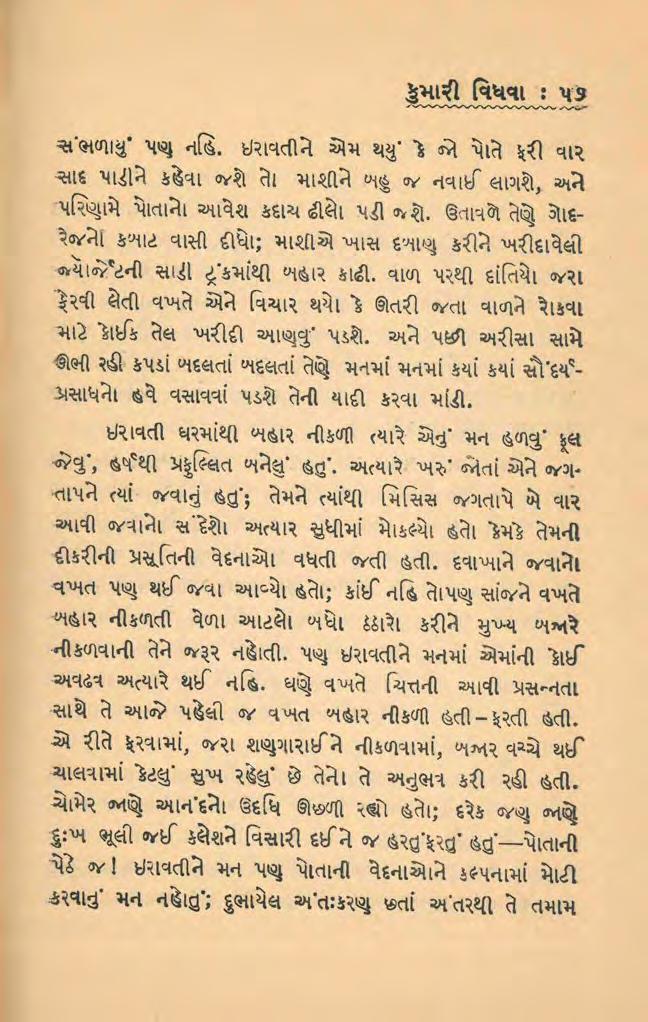 કુમારી વિધવા : ૫૭
સંભળાયું પણ નહિ. ઇરાવતીને એમ થયું કે જો પોતે ફરી વાર
સાદ પાડીને કહેવા જશે તો માશીને બહુ જ નવાઈ લાગશે, અને
પરિણામે પોતાનો આવેશ કદાચ ઢીલો પડી જશે. ઉતાવળે તેણે ગોદ-
રેજનો કબાટ વાસી દીધો; માશીએ ખાસ દબાણ કરીને ખરીદાવેલી
જ્યૉર્જેંટની સાડી ટ્રંકમાંથી બહાર કાઢી. વાળ પરથી દાંતિયો જરા
ફેરવી લેતી વખતે એને વિચાર થયો કે ઊતરી જતા વાળને રોકવા
માટે કોઈક તેલ ખરીદી આણવું પડશે. અને પછી અરીસા સામે
ઊભી રહી કપડાં બદલતાં બદલતાં તેણે મનમાં મનમાં કયાં કયાં સૌંદર્ય-
પ્રસાધનો હવે વસાવવાં પડશે તેની યાદી કરવા માંડી.
ઇરાવતી ઘરમાંથી બહાર નીકળી ત્યારે એનું મન હળવું ફૂલ
જેવું, હર્ષથી પ્રફુલ્લિત બનેલું હતું. અત્યારે ખરું જોતાં એને જગ-
તાપને ત્યાં જવાનું હતું; તેમને ત્યાંથી મિસિસ જગતાપે બે વાર
આવી જવાનો સંદેશો અત્યાર સુધીમાં મોકલ્યો હતો કેમકે તેમની
દીકરીની પ્રસૂતિની વેદનાઓ વધતી જતી હતી. દવાખાને જવાનો
વખત પણ થઈ જવા આવ્યો હતો; કાંઈ નહિ તોપણ સાંજને વખતે
બહાર નીકળતી વેળા આટલો બધો ઠઠારો કરીને મુખ્ય બજારે
નીકળવાની તેને જરૂર નહોતી. પણ ઇરાવતીને મનમાં એમાંની કોઈ
અવઢવ અત્યારે થઈ નહિ. ઘણે વખતે ચિત્તની આવી પ્રસન્નતા
સાથે તે આજે પહેલી જ વખત બહાર નીકળી હતી – ફરતી હતી.
એ રીતે ફરવામાં, જરા શણગારાઈને નીકળવામાં, બજાર વચ્ચે થઈ
ચાલવામાં કેટલું સુખ રહેલું છે તેનો તે અનુભવ કરી રહી હતી.
ચોમેર જાણે આનંદનો ઉદધિ ઊછળી રહ્યો હતો; દરેક જણ જાણે
દુઃખ ભૂલી જઈ ક્લેશને વિસારી દઈને જ હરતુંફરતું હતું—પોતાની
પેઠે જ! ઇરાવતીને મન પણ પોતાની વેદનાઓને કલ્પનામાં મોટી
કરવાનું મન નહોતું; દુભાયેલ અંતઃકરણ છતાં અંતરથી તે તમામ